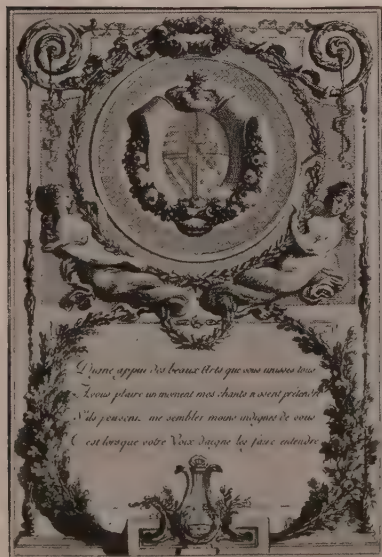 Digne appui des beaux Arts que vous unissés tous
A vous plaire un moment mes chants n'osent prétendre
S'ils peuvent me sembler moins indignes de vous
C'est lorsque votre Voix daigne les faire entendre